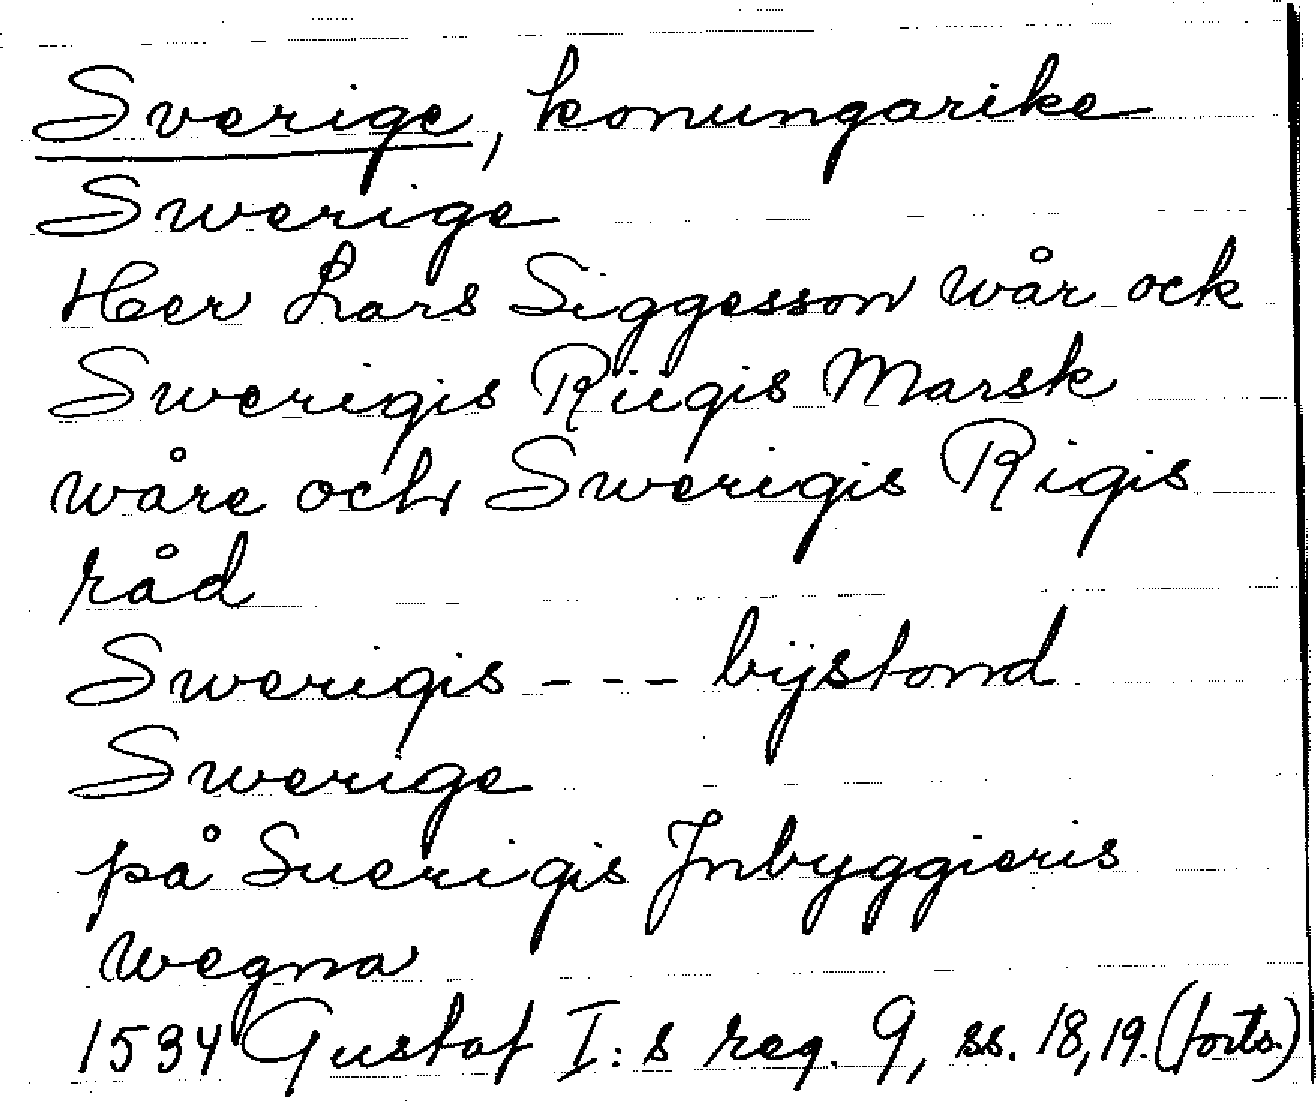 Sverige, konungarike
Swerige
Her Lars Siggesson wår ock
Swerigis Riigis Marsk
wåre och Swerigis Rigis
råd
Swerigis - - - bijstond
Swerige
på Suerigis Jnbyggieris
wegna
1534 Gustaf I:s reg. 9, ss. 18,19. (forts.)